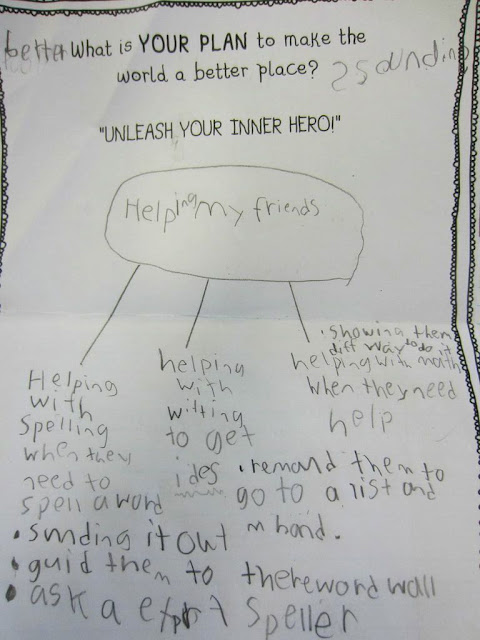 better What is YOUR PLAN to make the
world a better place? Sounding
"UNLEASH YOUR INNER HERO!"
Helping my friends
Helping
with
Spelling
when they
need to
spell a word
• sunding it out
• guid them to thereword wall
• ask a exprt speller
helping
with
witting
to get
ides
• remand them to
go to a list and
m hand.
• showing them
diff way to do it
helping with math
when they need
help